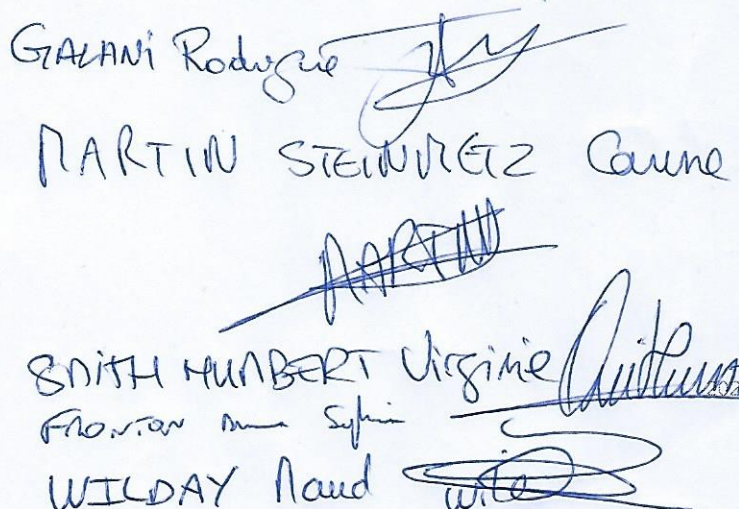 GALANI Rodrigue
MARTIN STEINMETZ Carine
MARTIN
SMITH HUMBERT Virginie
FRONTON Sylvie
WILDAY Maud